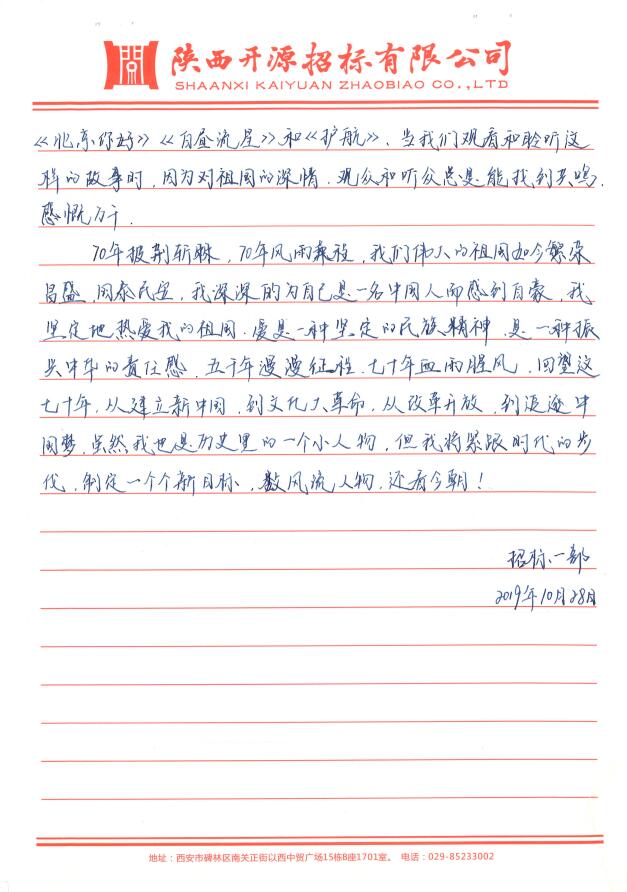 陕西开源招标有限公司
SHAANXI KAIYUAN ZHAOBIAO CO.,LTD
《北京你好》《白昼流星》和《护航》、当我们观看和聆听这
样的故事时，因为对祖国的深情，观众和听众总是能找到共鸣，
感慨万千。
70年披荆斩棘，70年风雨兼程，我们伟大的祖国如今繁荣
昌盛，国泰民安，我深深的为自己是一名中国人而感到自豪，我
坚定地热爱我的祖国。爱是一种坚定的民族精神，是一种振
兴中华的责任感，五千年漫漫征程，七十年血雨腥风，回望这
七十年，从建立新中国，到文化大革命，从改革开放，到追逐中
国梦，虽然我也是历史里的一个小人物，但我将紧跟时代的步
伐，制定一个个新目标，数风流人物，还看今朝！
招标一部
2019年10月28日
地址：西安市碑林区南关正街以西中贸广场15栋B座1701室。 电话：029-85233002